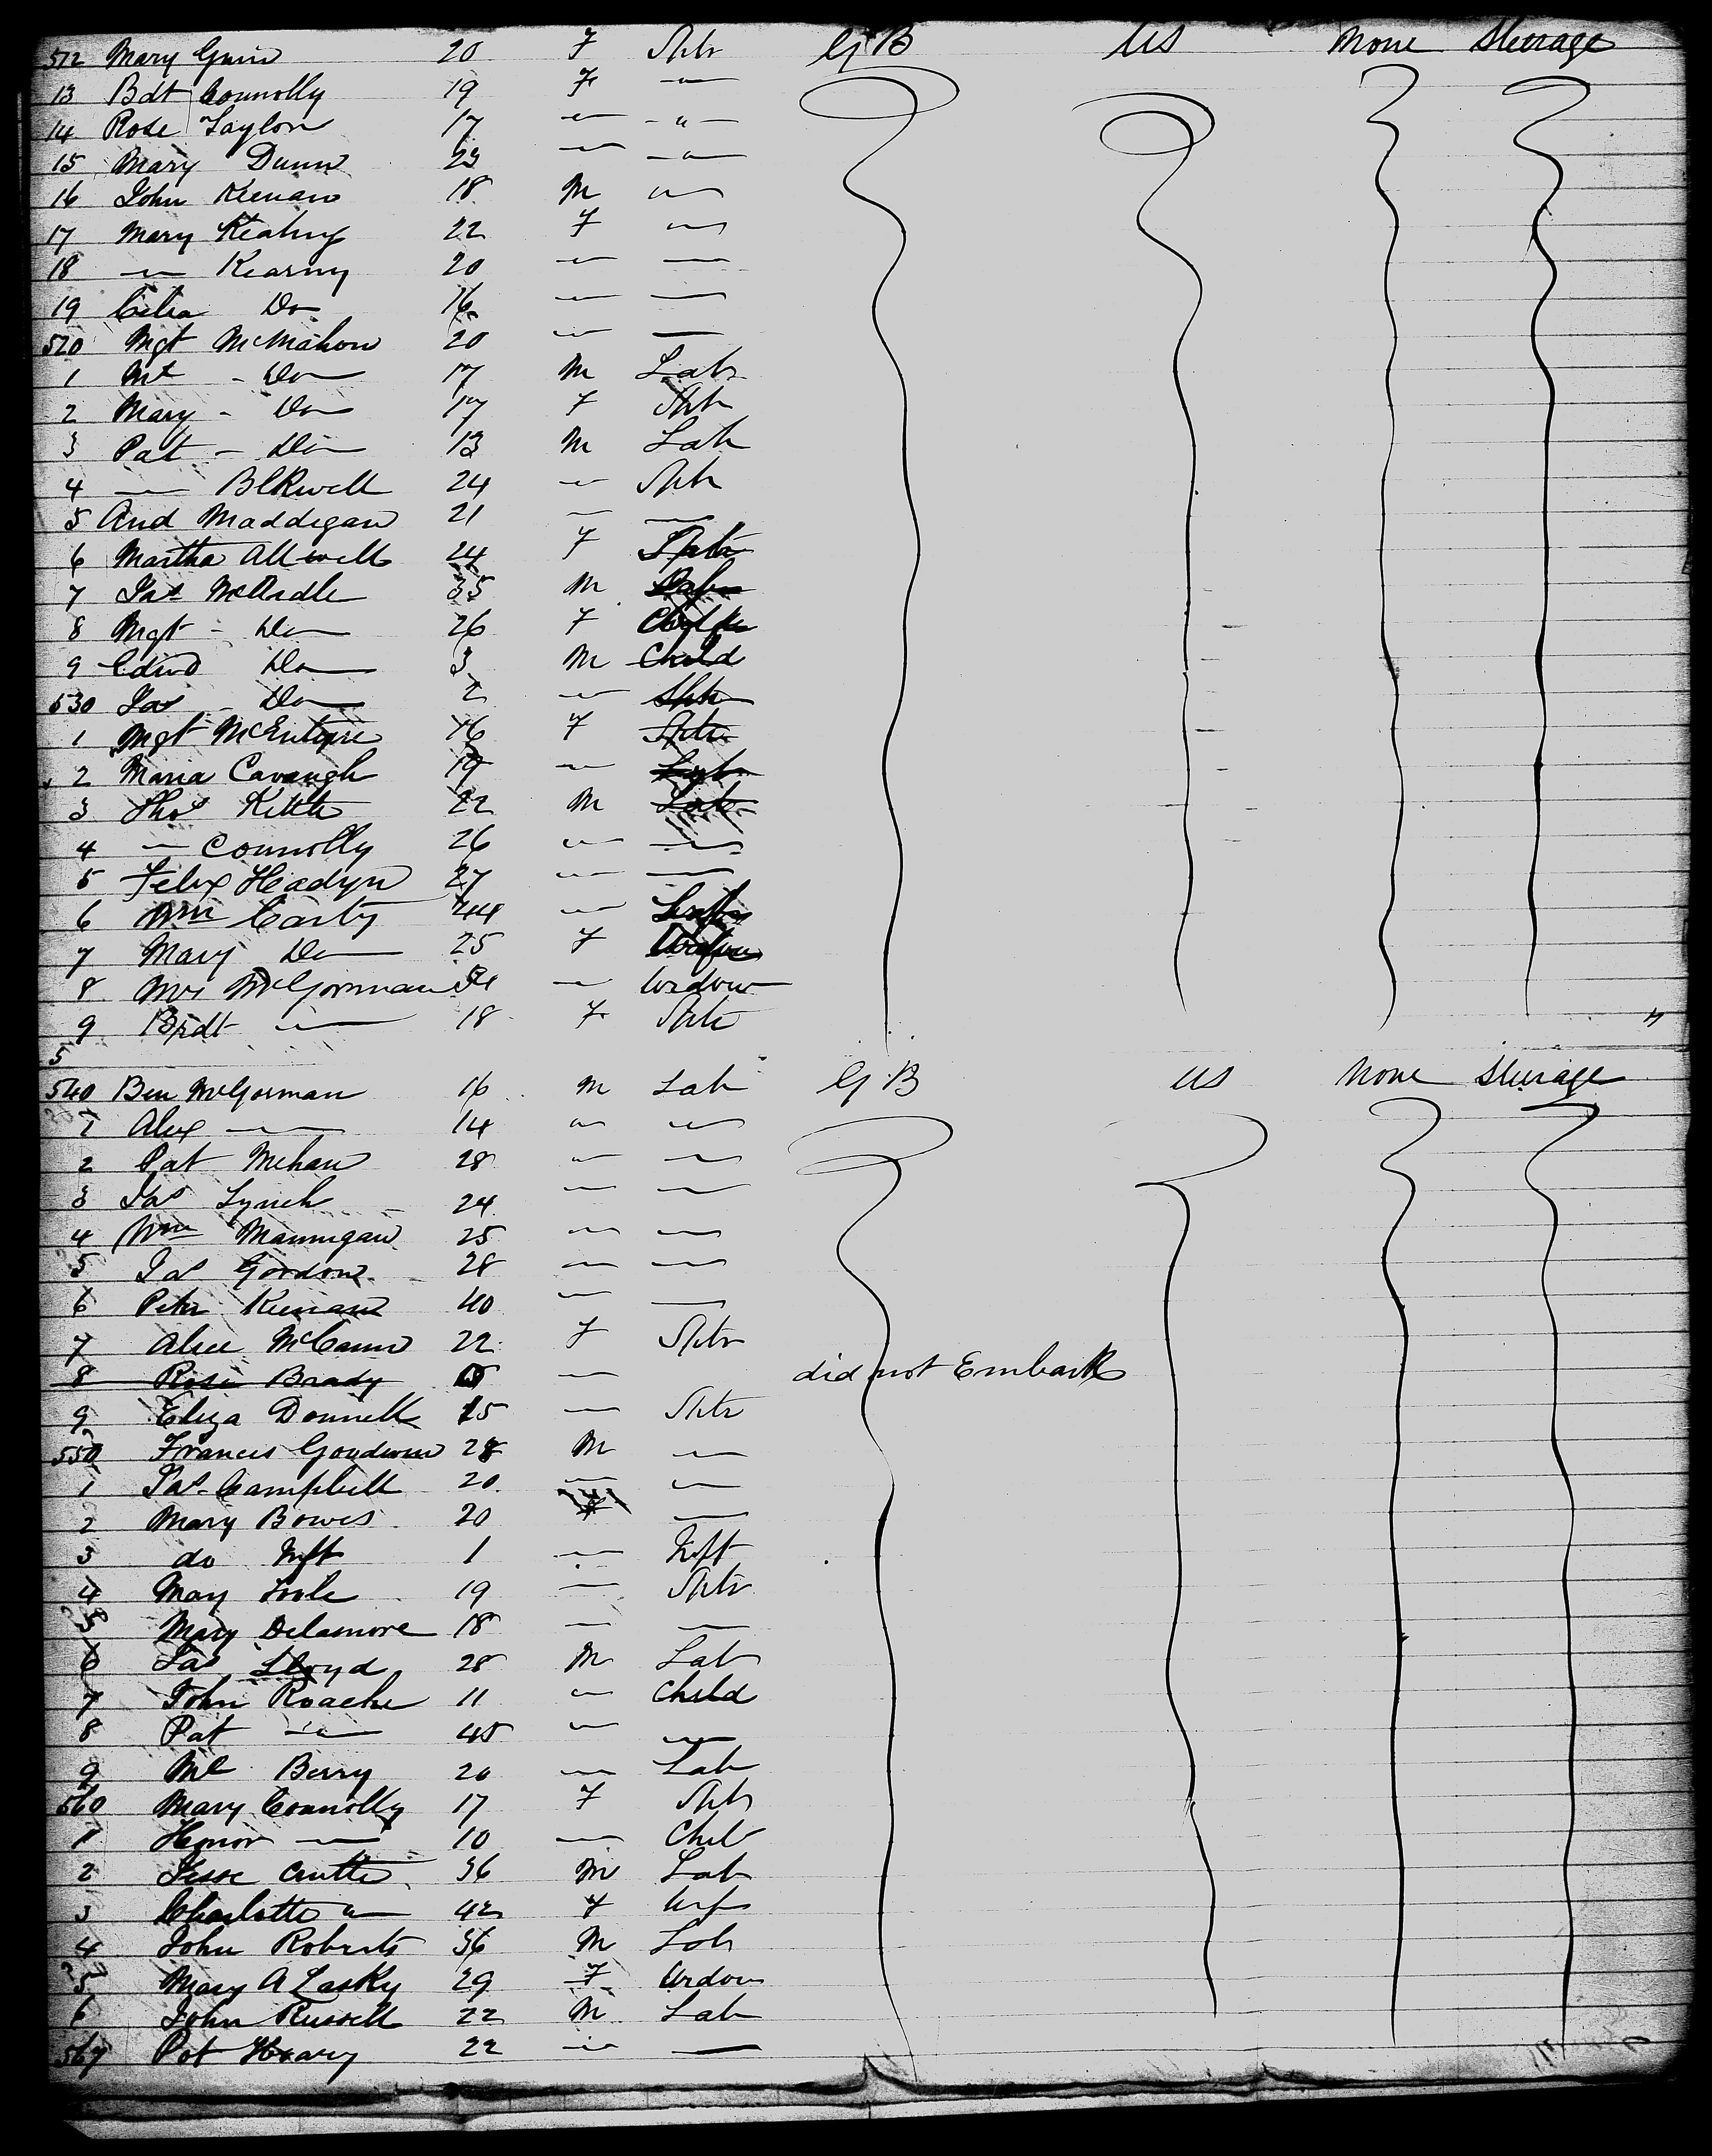 512 Mary Gunn 20 F Sptr GB US None Steerage
13 Bdt Connolly 19 F — " —
14 Rose Taylor 17 — - " -
15 Mary Dunn 23 — - " -
16 John Keenan 18 M "
17 Mary Keating 22 F "
18 — Kearny 20 — —
19 Celia Do 16 — —
520 Mgt McMahon 20 — —
1 Ml - Do 17 M Labr
2 Mary - Do 17 F Sptr
3 Pat - Do 13 M Lab
4 — Blkwell 24 — Sptr
5 And Maddigan 21 — —
6 Martha Attwell 24 F Sptr
7 Jas McArdle 35 M
8 Mgt - Do 26 F
9 Edwd Do 3 M Child
530 Jas - Do 2 —
1 Mgt McEntyre 16 F Sptr
2 Maria Cavanagh 19 —
3 Thos Kettle 22 M Lab
4 — Connolly 26 — —
5 Felix Headyn 27 — —
6 Wm Carty 44 —
7 Mary Do 25 F
8 Mrs McGorman — Widow
9 Bridt — 18 F Sptr
5
540 Ben McGorman 16 M Lab GB US None Steerage
1 Alex — 14 " —
2 Pat Mehan 28 — —
3 Jas Lynch 24 — —
4 Wm Mannigan 25 — —
5 Jas Gordon 28 — —
6 Peter Keenan 40 — —
7 Alice McCann 22 F Sptr
8 Rose Brady — did not Embark
9 Eliza Donnell 25 — Sptr
550 Francis Goodwin 28 M —
1 Jas Campbell 20 — —
2 Mary Bowes 20 F —
3 do Inft 1 — Inft
4 Mary Toole 19 — Sptr
5 Mary Delamore 18 — —
6 Jas Lloyd 28 M Lab
7 John Roache 11 " Child
8 Pat — 45 " —
9 Ml Berry 20 — Lab
560 Mary Connolly 17 F Sptr
1 Honor — 10 — Chil
2 Jesse Crutte 36 M Lab
3 Charlotte " 42 F Wf
4 John Roberts 36 M Lab
5 Mary A Lasky 29 F Widow
6 John Russell 22 M Lab
567 Pat Heary 22 — —